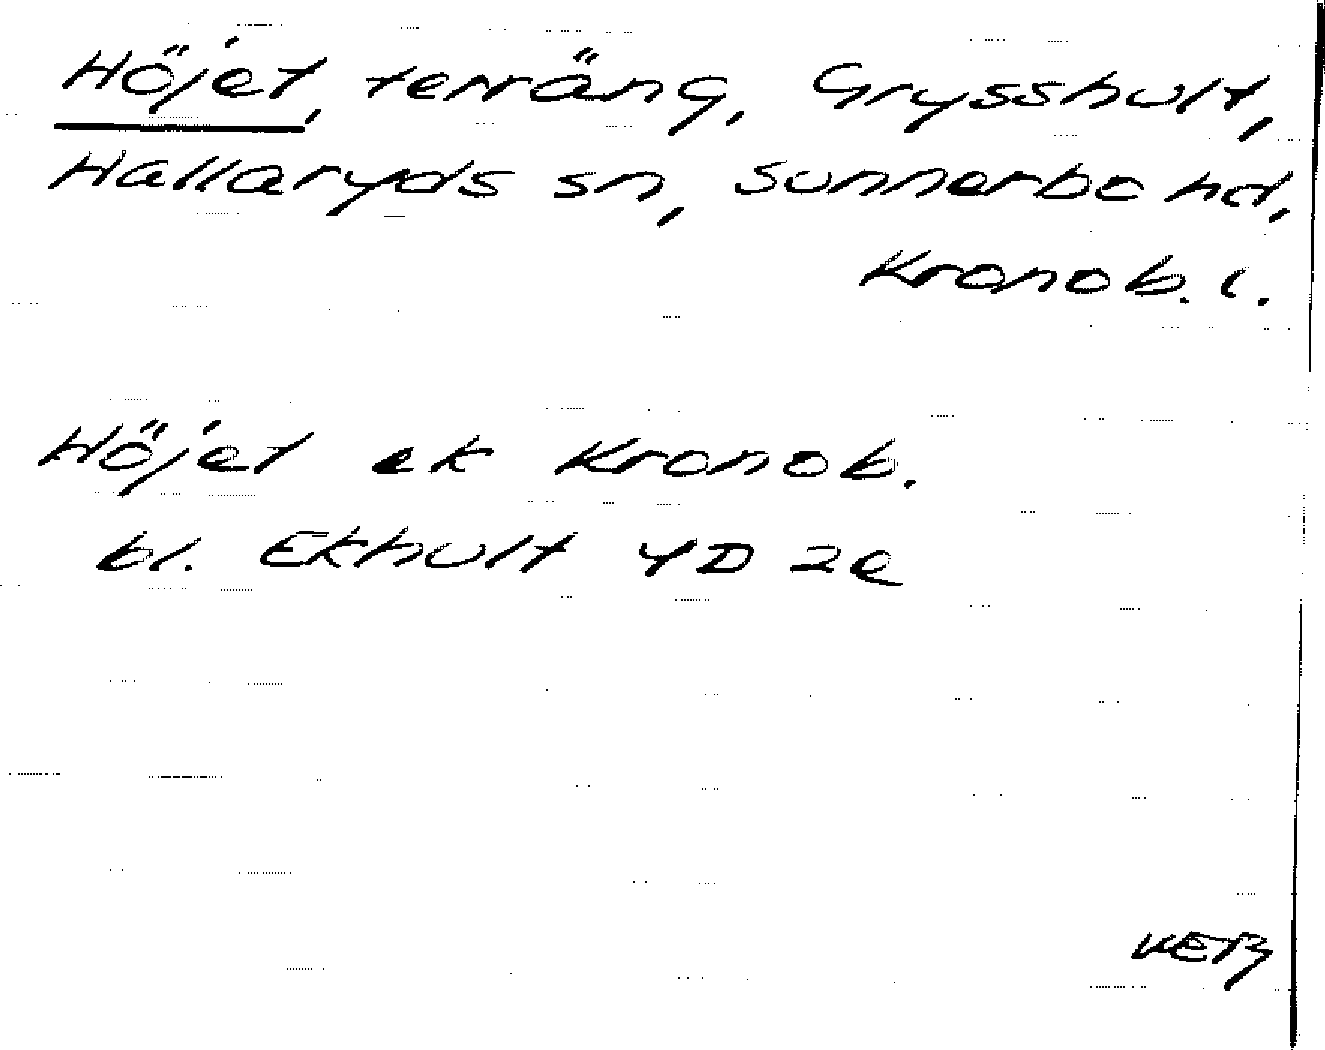 Höjet, terräng, Grysshult,
Hallaryds sn, Sunnerbo hd,
Kronob. l.
Höjet ek Kronob.
bl. Ekhult 4D 2e